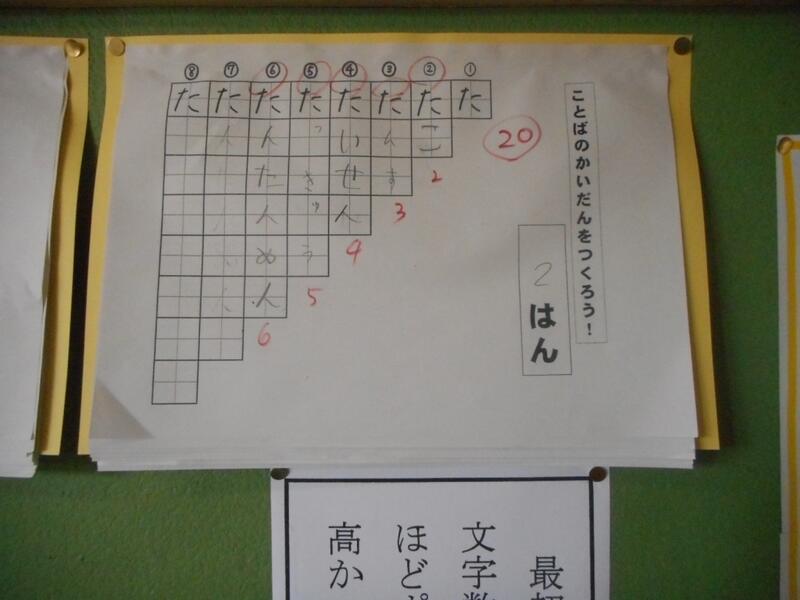 ことばのかいだんをつくろう!
2 はん
20
①
た
②
たこ
2
③
たんす
3
④
たいせん
4
⑤
たっきゅう
5
⑥
たんたんめん
6
⑦
た
⑧
た
最
文字数
ほど
高か